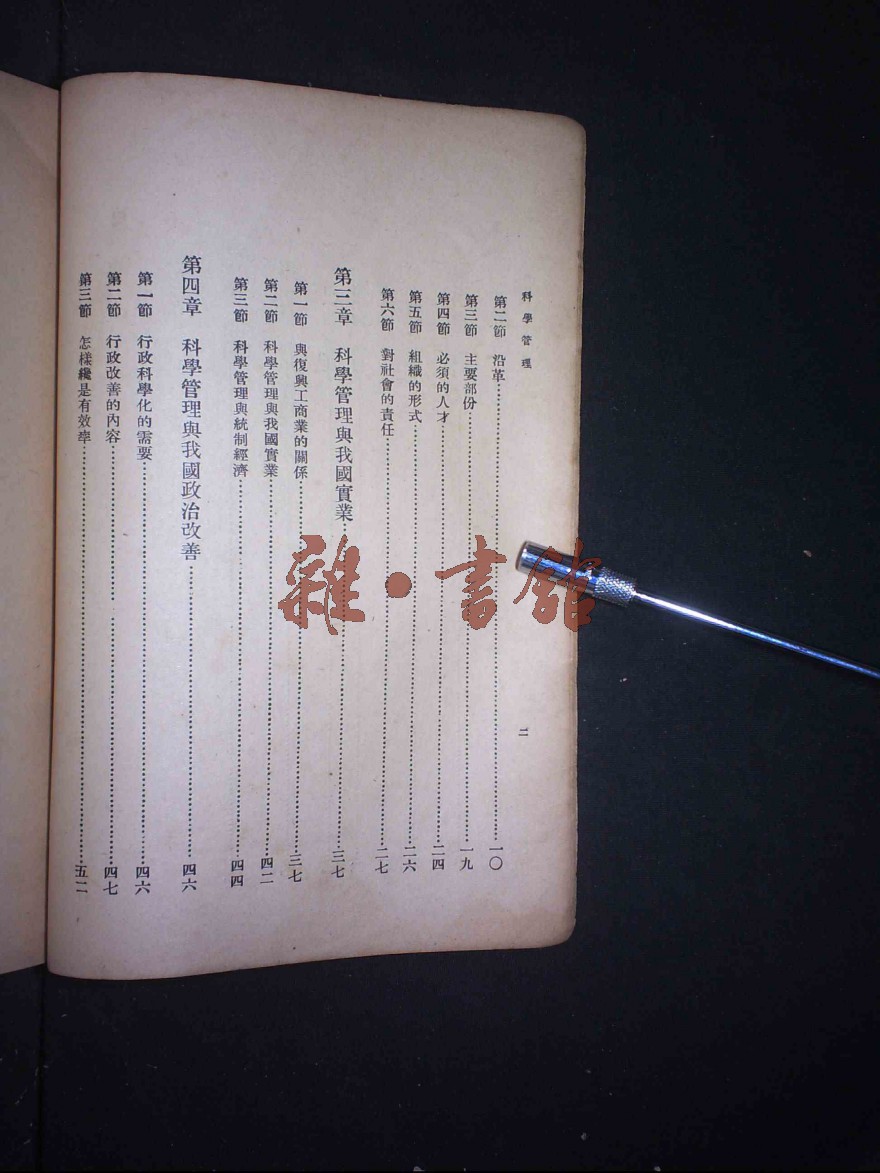 科學管理
第二節 沿革……一〇
第三節 主要部份……一九
第四節 必須的人才……二四
第五節 組織的形式……二六
第六節 對社會的責任……二七
第三章 科學管理與我國實業……三七
第一節 與復興工商業的關係……三七
第二節 科學管理與我國實業……四二
第三節 科學管理與統制經濟……四四
第四章 科學管理與我國政治改善……四六
第一節 行政科學化的需要……四六
第二節 行政改善的內容……四七
第三節 怎樣纔是有效率……五二
二
雜·書館